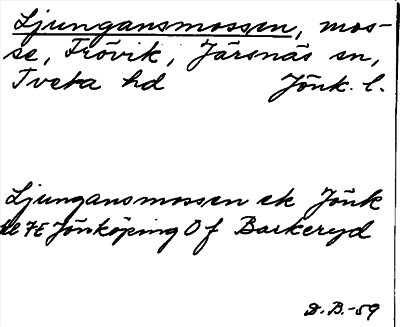 Ljungansmossen, mos-
se, Frövik, Järsnäs sn,
Tveta hd Jönk. l.
Ljungansmossen ek Jönk
bl 7E Jönköping Of Barkeryd
D.B.-59